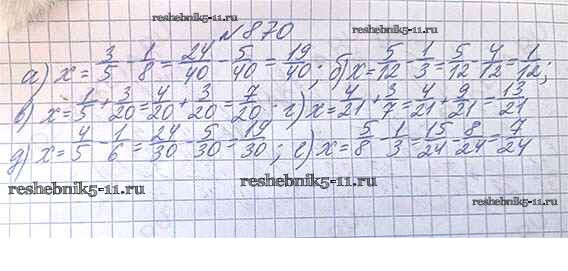 №870
reshebnik5-11.ru
reshebnik5-11.ru
а) x = 3/5 - 1/8 = 24/40 - 5/40 = 19/40; б) x = 5/12 - 1/3 = 5/12 - 4/12 = 1/12;
в) x = 1/5 + 3/20 = 4/20 + 3/20 = 7/20. г) x = 4/21 + 3/7 = 4/21 + 9/21 = 13/21
д) x = 4/5 - 1/6 = 24/30 - 5/30 = 19/30; е) x = 5/8 - 1/3 = 15/24 - 8/24 = 7/24
reshebnik5-11.ru
reshebnik5-11.ru
reshebnik5-11.ru